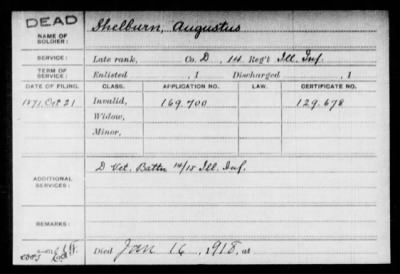 DEAD
NAME OF SOLDIER: Shelburn, Augustus
SERVICE: Late rank, Co. D, 14 Reg't Ill. Inf.
TERM OF SERVICE: Enlisted , 1 Discharged , 1
DATE OF FILING. CLASS. APPLICATION NO. LAW. CERTIFICATE NO.
1871, Oct 21 Invalid, 169.700 129.678
Widow,
Minor,
ADDITIONAL SERVICES: D Vet. Battn 14/15 Ill. Inf.
REMARKS:
Died Jan 16, 1918, at